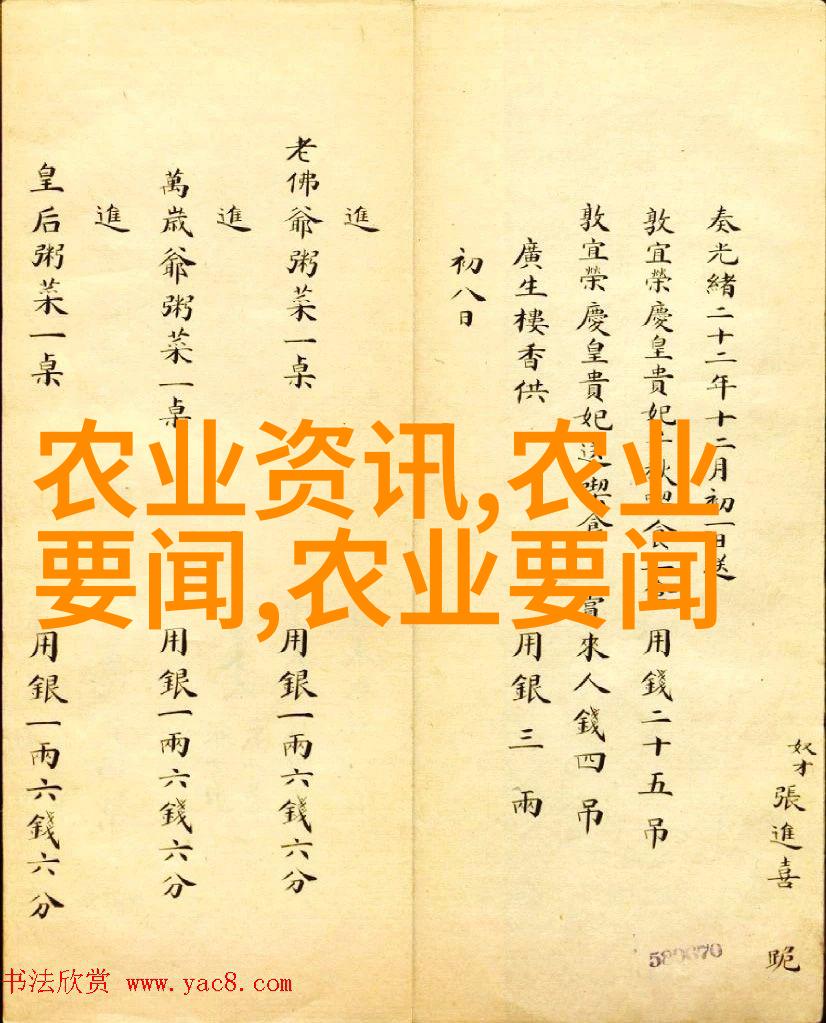 奴才張進喜 跪
奏光緒二十二年十二月初一日送
敦宜榮慶皇貴妃 食 用錢二十五吊
敦宜榮慶皇貴妃送喫食 賞來人錢四吊
廣生樓香供 用銀三兩
初八日
進
老佛爺粥菜一桌 用銀一兩六錢六分
進
萬歲爺粥菜一桌 用銀一兩六錢六分
進
皇后粥菜一桌 用銀一兩六錢六分
农业资讯,农业
要闻,农业要闻
书法欣赏 www.yac8.com